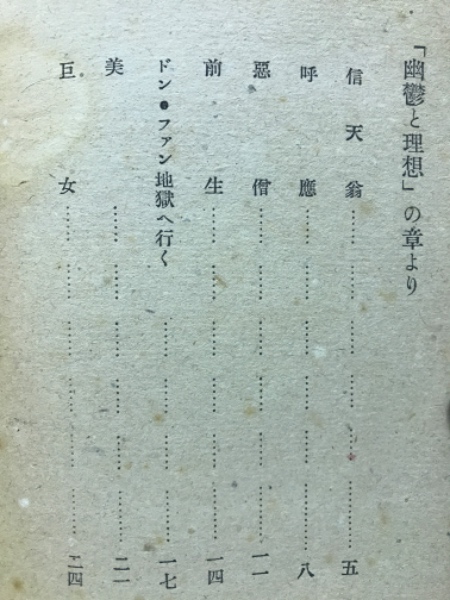 「幽鬱と理想」の章より
信天翁……………………………………五
呼應……………………………………八
惡僧……………………………………一一
前生……………………………………一四
ドン・ファン地獄へ行く……………………………………一七
美……………………………………二一
巨女……………………………………二四